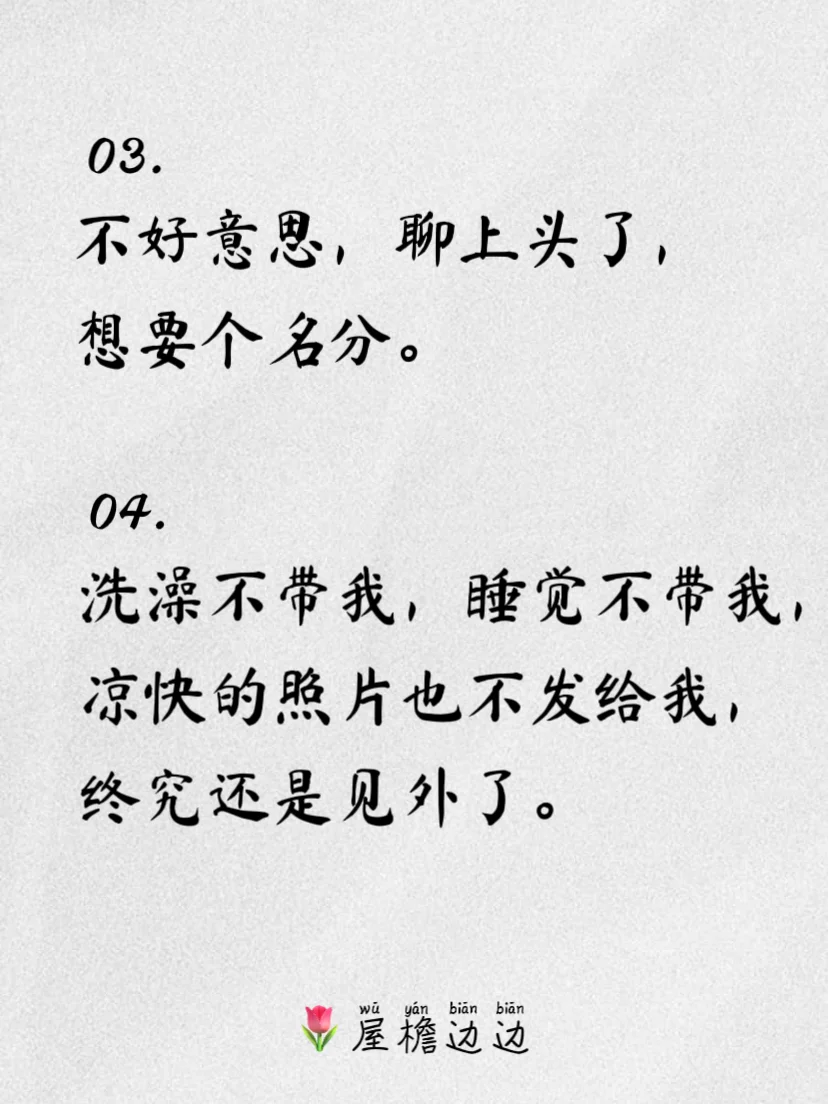 03.
不好意思，聊上头了，
想要个名分。
04.
洗澡不带我，睡觉不带我，
凉快的照片也不发给我，
终究还是见外了。
wū yán biān biān
屋檐边边